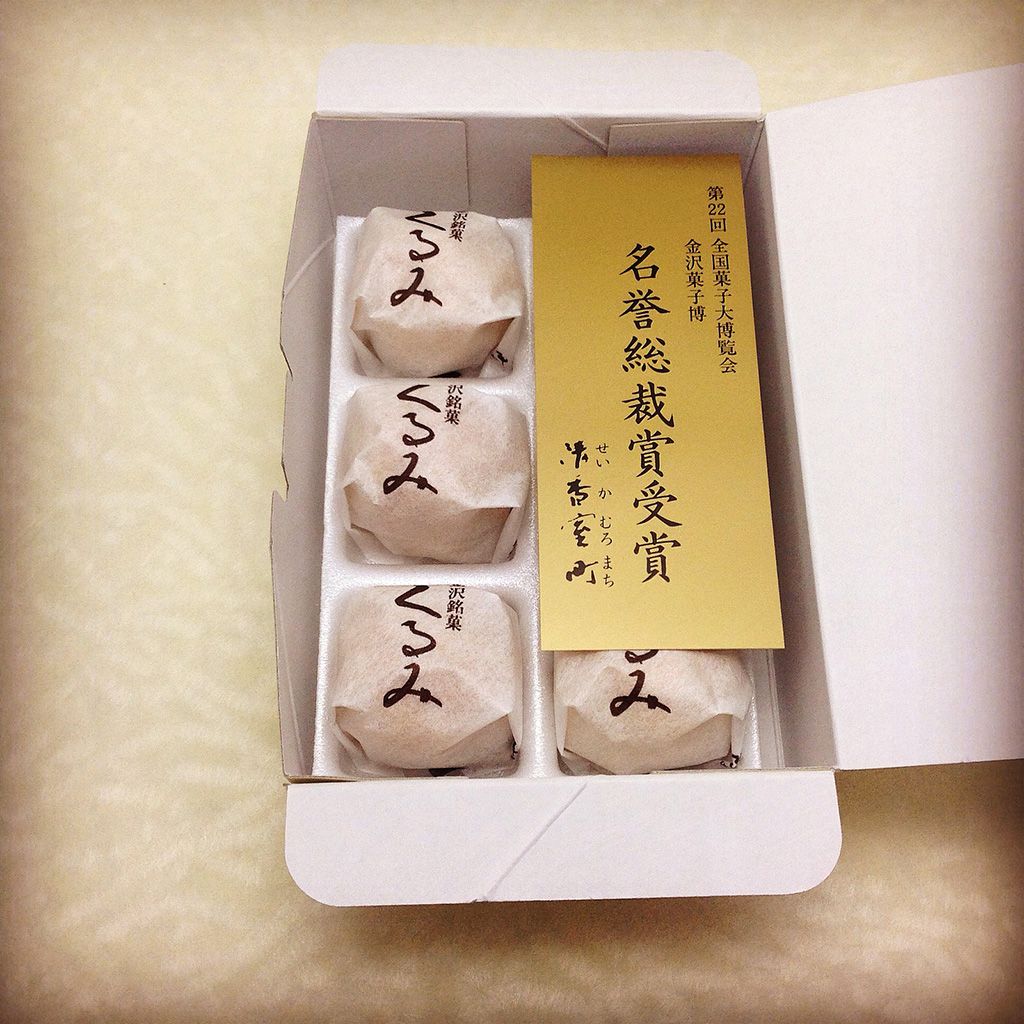 第22回 全国菓子大博覧会
金沢菓子博
名誉総裁賞受賞
せいか むろまち
清香室町
沢銘菓
くるみ
沢銘菓
くるみ
金沢銘菓
くるみ
るみ